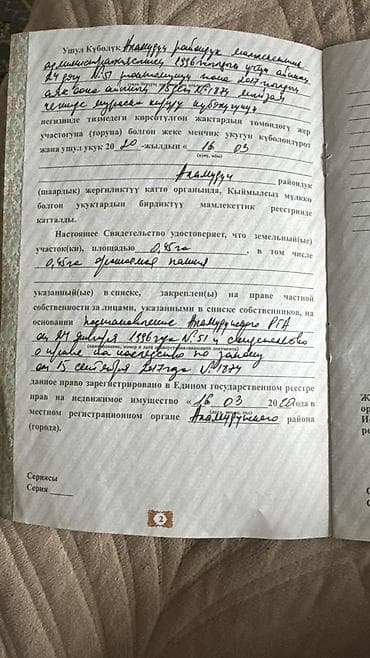 Ушул Күбөлүк Аламүдүн райондук мамлекеттик
администрациясынын 1996-жылдын
24 № 51 токтомунун жана 2017-жылдын
15 № 1874 мыйзам
боюнча мураска укугу күбөлүгүнүн
негизинде тизмедеги көрсөтүлгөн жактардын төмөндөгү жер
участогуна (торуна) болгон жеке менчик укугун күбөлөндүрөт
жана ушул укук 20 20 -жылдын « 16 03
(күнү, айы)
Аламүдүн райондук
(шаардык) жергиликтүү каттоо органында, Кыймылсыз мүлккө
болгон укуктардын бирдиктүү мамлекеттик реестринде
катталды.
Настоящее Свидетельство удостоверяет, что земельный(е)
участок(ки), площадью 0,45 га , в том числе
0,45 га орошаемая пашня
указанный(е) в списке, закреплен(ы) на праве частной
собственности за лицами, указанными в списке собственников, на
основании постановление Аламудунского РГА
от 24 января 1996 года № 51 и свидетельство
о праве на наследство по закону
от 15 сентября 2017 года № 1874
данное право зарегистрировано в Едином государственном реестре
прав на недвижимое имущество « 16 03 20 20 года в
местном регистрационном органе Аламудунского района
(города).
Сериясы
Серия
2